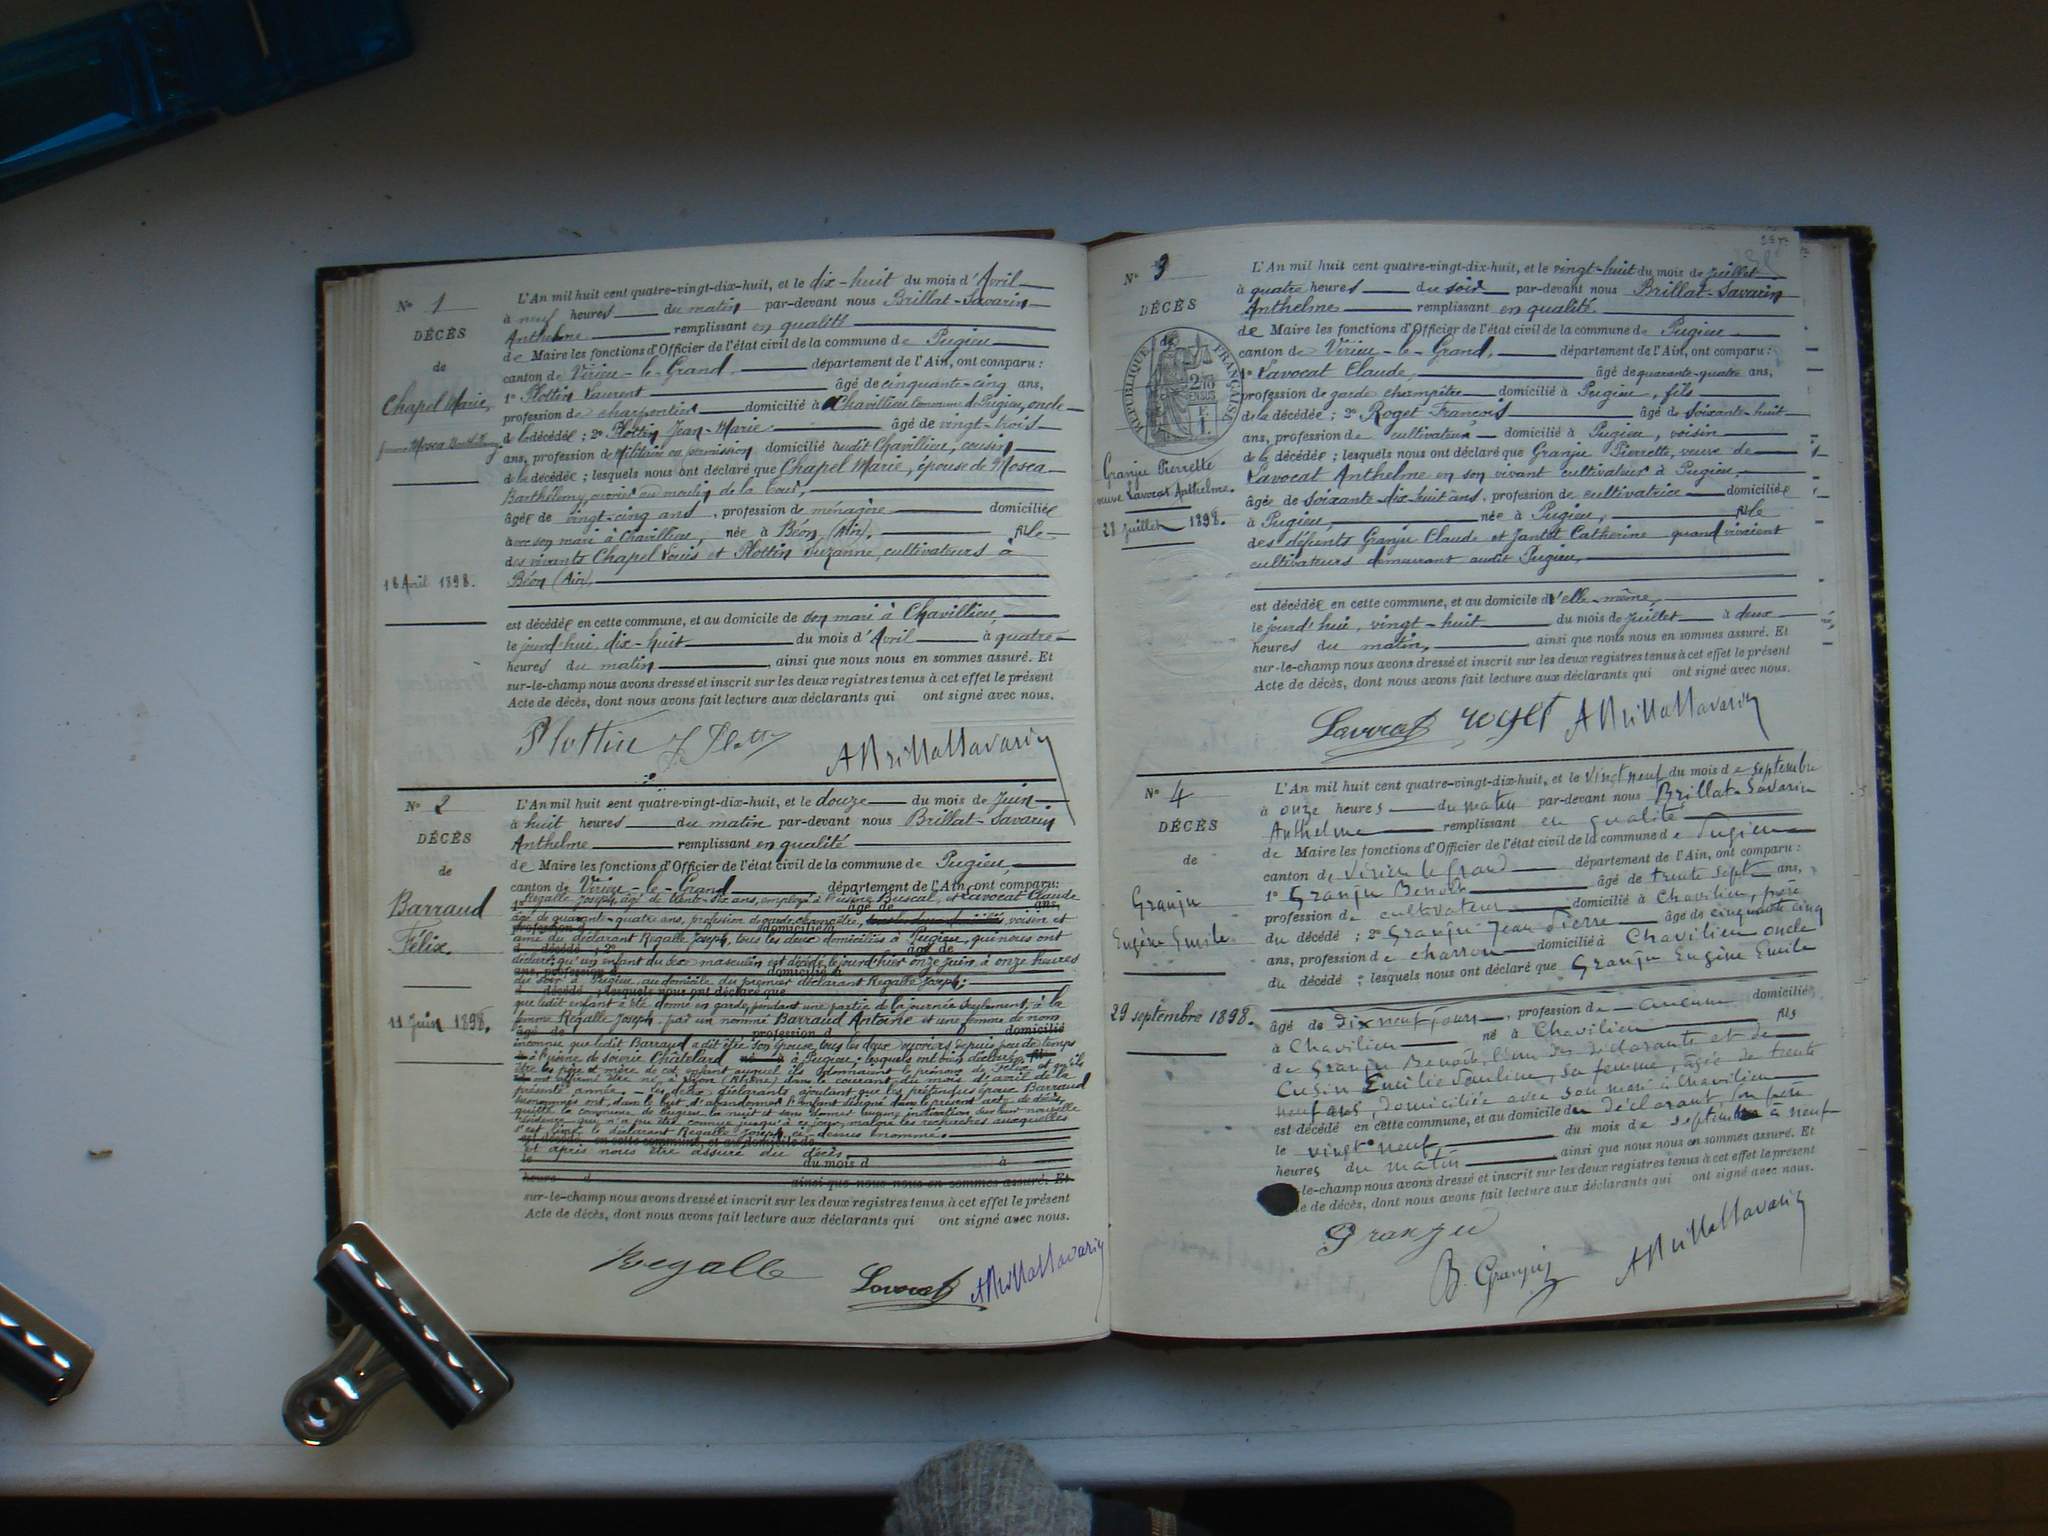 N° 1
DÉCÈS
de
Chapel Marie,
femme Mosca Barthélemy
18 Avril 1898.
L'An mil huit cent quatre-vingt-dix-huit, et le dix-huit du mois d'Avril
à neuf heures du matin par-devant nous Brillat-Savarin
Anthelme remplissant en qualité
de Maire les fonctions d'Officier de l'état civil de la commune de Pugieu
canton de Virieu-le-Grand, département de l'Ain, ont comparu :
1° Plottin Laurent âgé de cinquante-cinq ans,
profession de charpentier domicilié à Chavillieu commune de Pugieu, oncle
de la décédée ; 2° Plottin Jean-Marie âgé de vingt-trois
ans, profession de Militaire en permission domicilié audit Chavillieu, cousin
de la décédée ; lesquels nous ont déclaré que Chapel Marie, épouse de Mosca
Barthélemy, ouvrier au moulin de la Cour,
âgée de vingt-cinq ans, profession de ménagère domiciliée
avec son mari à Chavillieu, née à Béon (Ain), fille
des vivants Chapel Louis et Plottin Suzanne, cultivateurs à
Béon (Ain),
est décédée en cette commune, et au domicile de son mari à Chavillieu,
le jourd'hui, dix-huit du mois d'Avril à quatre
heures du matin, ainsi que nous nous en sommes assuré. Et
sur-le-champ nous avons dressé et inscrit sur les deux registres tenus à cet effet le présent
Acte de décès, dont nous avons fait lecture aux déclarants qui ont signé avec nous.
Plottin J. Plottin ABrillatSavarin
N° 2
DÉCÈS
de
Barraud
Félix.
11 Juin 1898.
L'An mil huit cent quatre-vingt-dix-huit, et le douze du mois de Juin
à huit heures du matin par-devant nous Brillat-Savarin
Anthelme remplissant en qualité
de Maire les fonctions d'Officier de l'état civil de la commune de Pugieu,
canton de Virieu-le-Grand département de l'Ain, ont comparu :
Regalle Joseph, âgé de trente-six ans, employé à l'usine Buscal, et Lavocat Claude
âgé de quarante-quatre ans, profession de garde champêtre, voisin et
ami du déclarant Regalle Joseph, tous les deux domiciliés à Pugieu, qui nous ont
déclaré qu'un enfant du sexe masculin est décédé le jourd'hier onze juin, à onze heures
du soir à Pugieu, au domicile du premier déclarant Regalle Joseph ;
que ledit enfant a été donné en garde, pendant une partie de la journée seulement, à la
femme Regalle Joseph, par un nommé Barraud Antoine et une femme de nom
inconnue que ledit Barraud a dit être son épouse, tous les deux ouvriers depuis peu de temps
à l'usine de soierie Châtelard à Pugieu ; lesquels ont bien déclaré
être les père et mère de cet enfant auquel ils donnaient le prénom de Félix et qu'ils
ont affirmé être né à Lyon (Rhône) dans le courant du mois d'avril de la
présente année. — les deux déclarants ajoutant que les prétendus époux Barraud
susnommés ont, dans le but d'abandonner l'enfant désigné dans le présent acte de décès,
quitté la commune de Pugieu la nuit et sans donner aucune indication sur leur nouvelle
résidence qui n'a pu être connue jusqu'à ce jour, malgré les recherches auxquelles
s'est livré le déclarant Regalle Joseph, ci-dessus nommé.
et après nous être assuré du décès,
sur-le-champ nous avons dressé et inscrit sur les deux registres tenus à cet effet le présent
Acte de décès, dont nous avons fait lecture aux déclarants qui ont signé avec nous.
Regalle Lavocat ABrillatSavarin
N° 3
DÉCÈS
de
RÉPUBLIQUE FRANÇAISE
Granju Pierrette
veuve Lavocat Anthelme.
28 juillet 1898.
L'An mil huit cent quatre-vingt-dix-huit, et le vingt-huit du mois de Juillet
à quatre heures du soir par-devant nous Brillat-Savarin
Anthelme remplissant en qualité
de Maire les fonctions d'Officier de l'état civil de la commune de Pugieu
canton de Virieu-le-Grand, département de l'Ain, ont comparu :
1° Lavocat Claude, âgé de quarante-quatre ans,
profession de garde champêtre domicilié à Pugieu, fils
de la décédée ; 2° Roget François âgé de soixante-huit
ans, profession de cultivateur domicilié à Pugieu, voisin
de la décédée ; lesquels nous ont déclaré que Granju Pierrette, veuve de
Lavocat Anthelme en son vivant cultivateur à Pugieu,
âgée de soixante-dix-huit ans, profession de cultivatrice domiciliée
à Pugieu, née à Pugieu, fille
des défunts Granju Claude et Jantet Catherine quand vivaient
cultivateurs demeurant audit Pugieu,
est décédée en cette commune, et au domicile d'elle-même,
le jourd'hui, vingt-huit du mois de juillet à deux
heures du matin, ainsi que nous nous en sommes assuré. Et
sur-le-champ nous avons dressé et inscrit sur les deux registres tenus à cet effet le présent
Acte de décès, dont nous avons fait lecture aux déclarants qui ont signé avec nous.
Lavocat roget ABrillatSavarin
N° 4
DÉCÈS
de
Granju
Eugène Emile.
29 septembre 1898.
L'An mil huit cent quatre-vingt-dix-huit, et le vingt neuf du mois de septembre
à onze heures du matin par-devant nous Brillat-Savarin
Anthelme remplissant en qualité
de Maire les fonctions d'Officier de l'état civil de la commune de Pugieu
canton de Virieu le grand département de l'Ain, ont comparu :
1° Granju Benoit âgé de trente sept ans,
profession de cultivateur domicilié à Chavilieu, père
du décédé ; 2° Granju Jean Pierre âgé de cinquante cinq
ans, profession de charron domicilié à Chavilieu oncle
du décédé ; lesquels nous ont déclaré que Granju Eugène Emile
âgé de dix neuf jours, profession de aucune domicilié
à Chavilieu né à Chavilieu fils
de Granju Benoit, l'un des déclarants et de
Cusin Emilie Pauline, sa femme, âgée de trente
neuf ans, domiciliée avec son mari à Chavilieu
est décédé en cette commune, et au domicile du déclarant, son père
le vingt neuf du mois de septembre à neuf
heures du matin ainsi que nous nous en sommes assuré. Et
le-champ nous avons dressé et inscrit sur les deux registres tenus à cet effet le présent
de décès, dont nous avons fait lecture aux déclarants qui ont signé avec nous.
Granju
B. Granju ABrillatSavarin